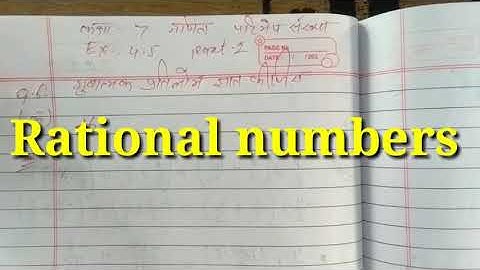 कक्षा 7 गणित परिमेय संख्या
Ex. 4.5 part-2
PAGE No.
DATE
गुणात्मक प्रतिलोम ज्ञात कीजिए
Rational numbers